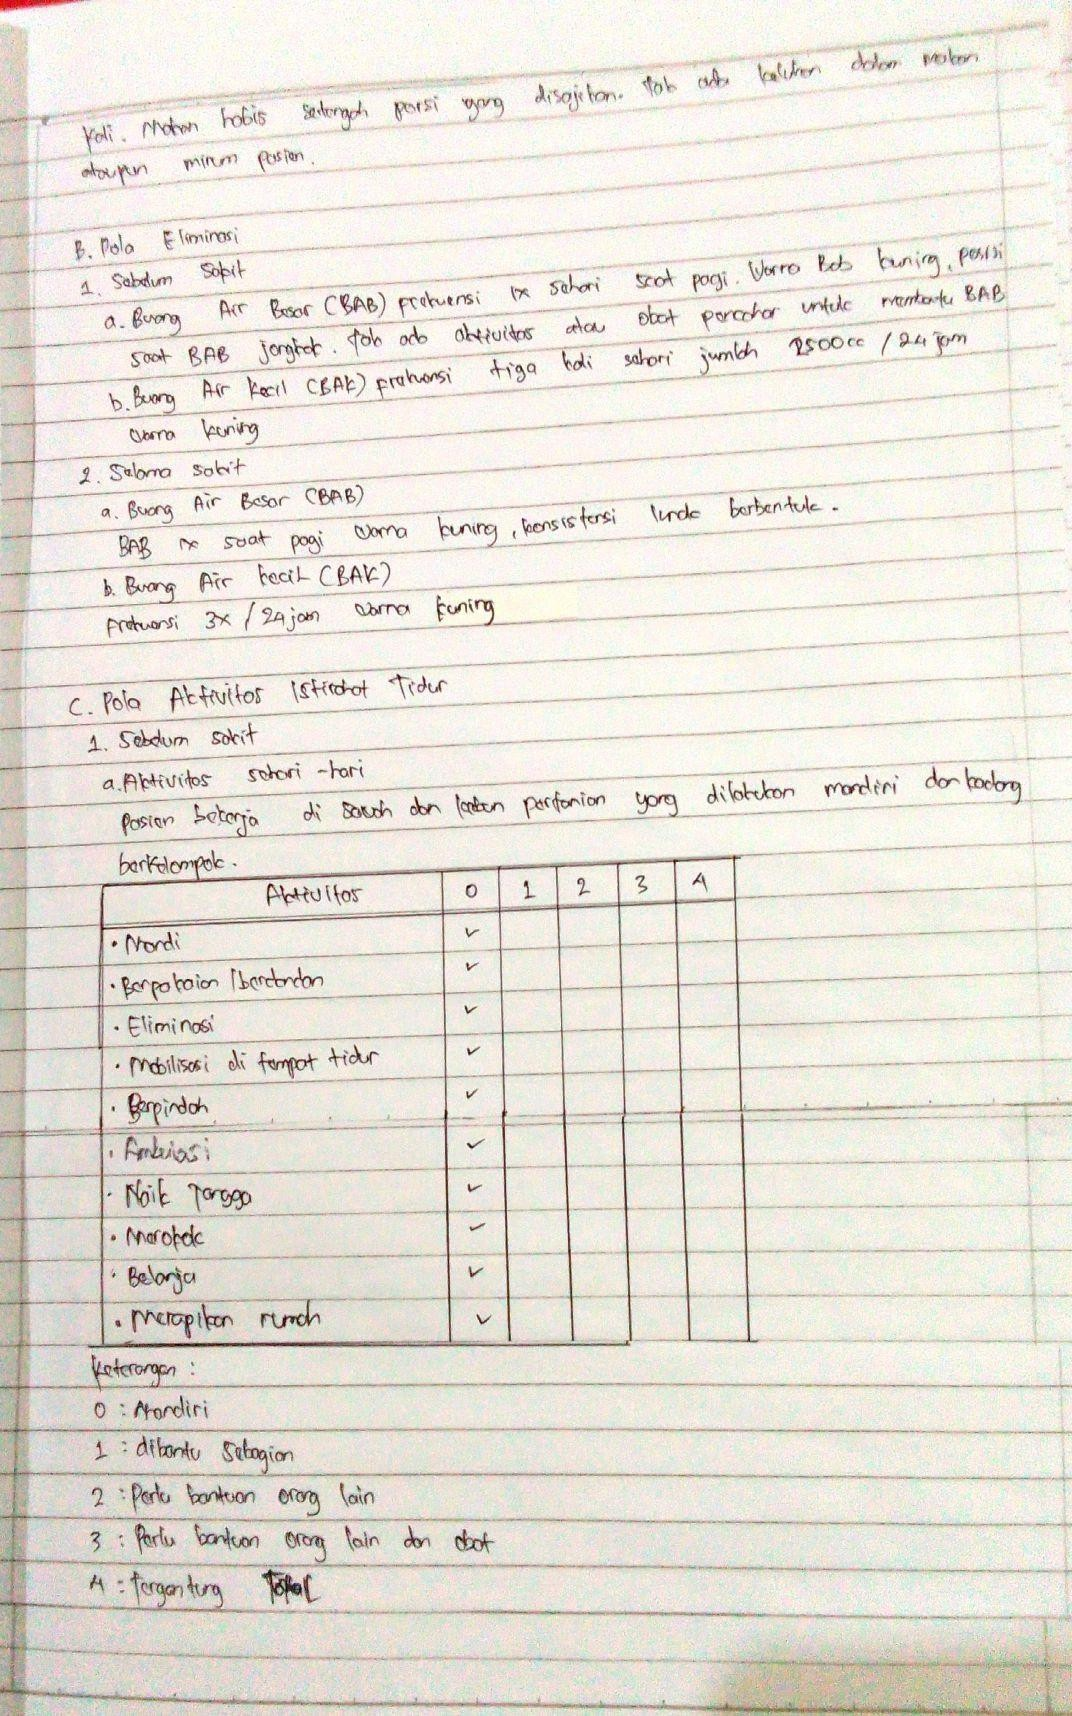 kali. Makan habis setengah porsi yang disajikan. Tak ada keluhan dalam makan
ataupun minum pasien.
B. Pola Eliminasi
1. Sebelum Sakit
a. Buang Air Besar (BAB) frekuensi 1x sehari saat pagi. Warna Bab kuning, posisi
saat BAB jongkok. Tak ada aktivitas atau obat pencahar untuk membantu BAB
b. Buang Air kecil (BAK) frekuensi tiga kali sehari jumlah 2500cc / 24 jam
warna kuning
2. Selama sakit
a. Buang Air Besar (BAB)
BAB 1x saat pagi warna kuning, konsistensi lunak berbentuk.
b. Buang Air kecil (BAK)
frekuensi 3x / 24 jam warna kuning
C. Pola Aktivitas Istirahat Tidur
1. Sebelum sakit
a. Aktivitas sehari-hari
Pasien bekerja di sawah dan lahan pertanian yang dilakukan mandiri dan kadang
berkelompok.
Aktivitas 0 1 2 3 4
• Mandi ✓
• Berpakaian / berdandan ✓
• Eliminasi ✓
• Mobilisasi di tempat tidur ✓
• Berpindah ✓
• Ambulasi ✓
• Naik Tangga ✓
• Merokok ✓
• Belanja ✓
• Merapikan rumah ✓
Keterangan :
0 : Mandiri
1 : dibantu Sebagian
2 : Perlu bantuan orang lain
3 : Perlu bantuan orang lain dan alat
4 : Tergantung Total